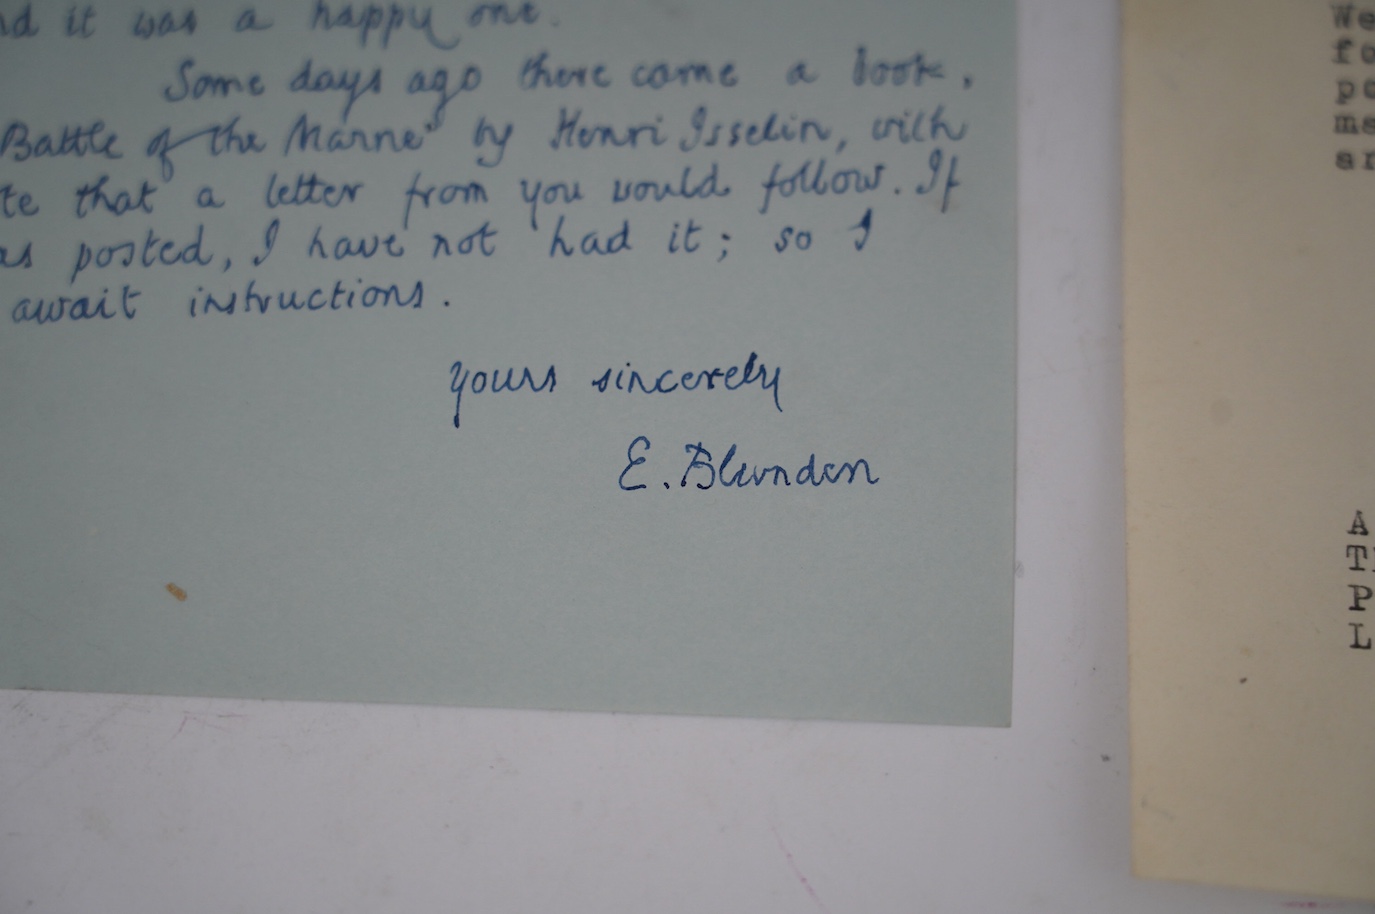 nd it was a happy one.
Some days ago there came a book,
Battle of the Marne' by Henri Isselin, with
te that a letter from you would follow. If
as posted, I have not had it; so I
await instructions.
Yours sincerely
E. Blunden
We
fo
po
me
ar
A
T
P
L